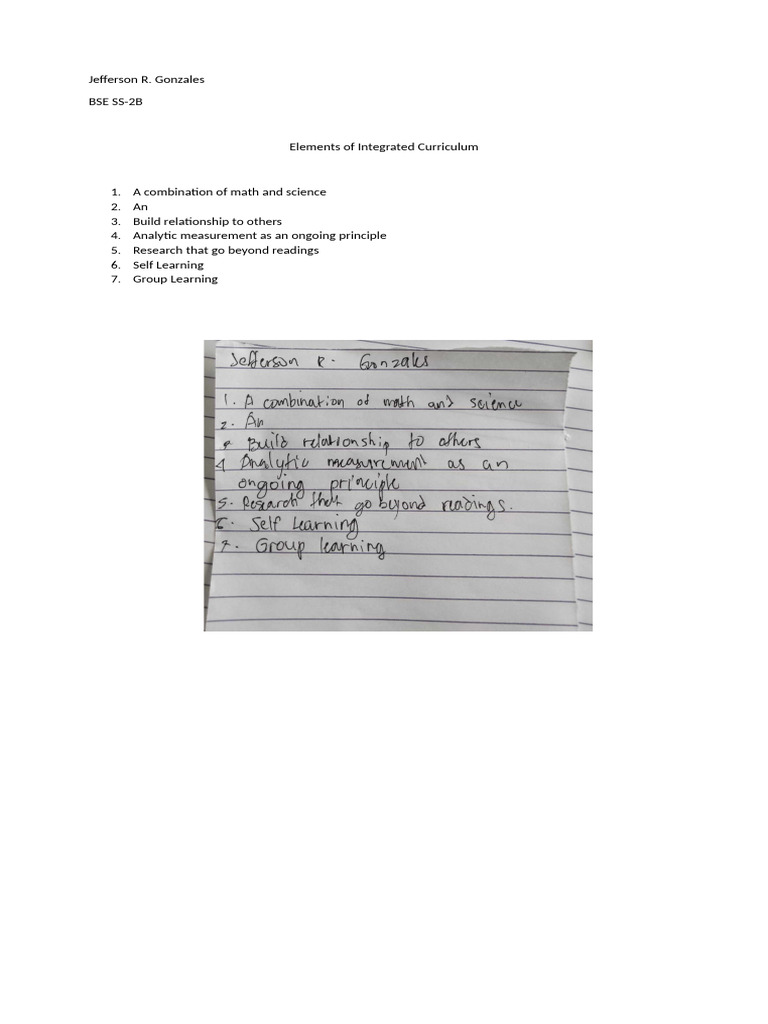 Jefferson R. Gonzales
BSE SS-2B
Elements of Integrated Curriculum
1. A combination of math and science
2. An
3. Build relationship to others
4. Analytic measurement as an ongoing principle
5. Research that go beyond readings
6. Self Learning
7. Group Learning
Jefferson R. Gonzales
1. A combination of math and science
2. An
Build relationship to others
4 Analytic measurement as an
ongoing principle
5. Research that go beyond readings.
6. Self Learning
7. Group learning